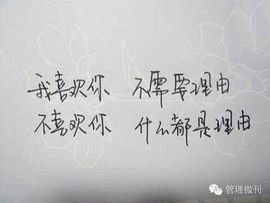 我喜欢你 不需要理由
不喜欢你 什么都是理由
管理微刊